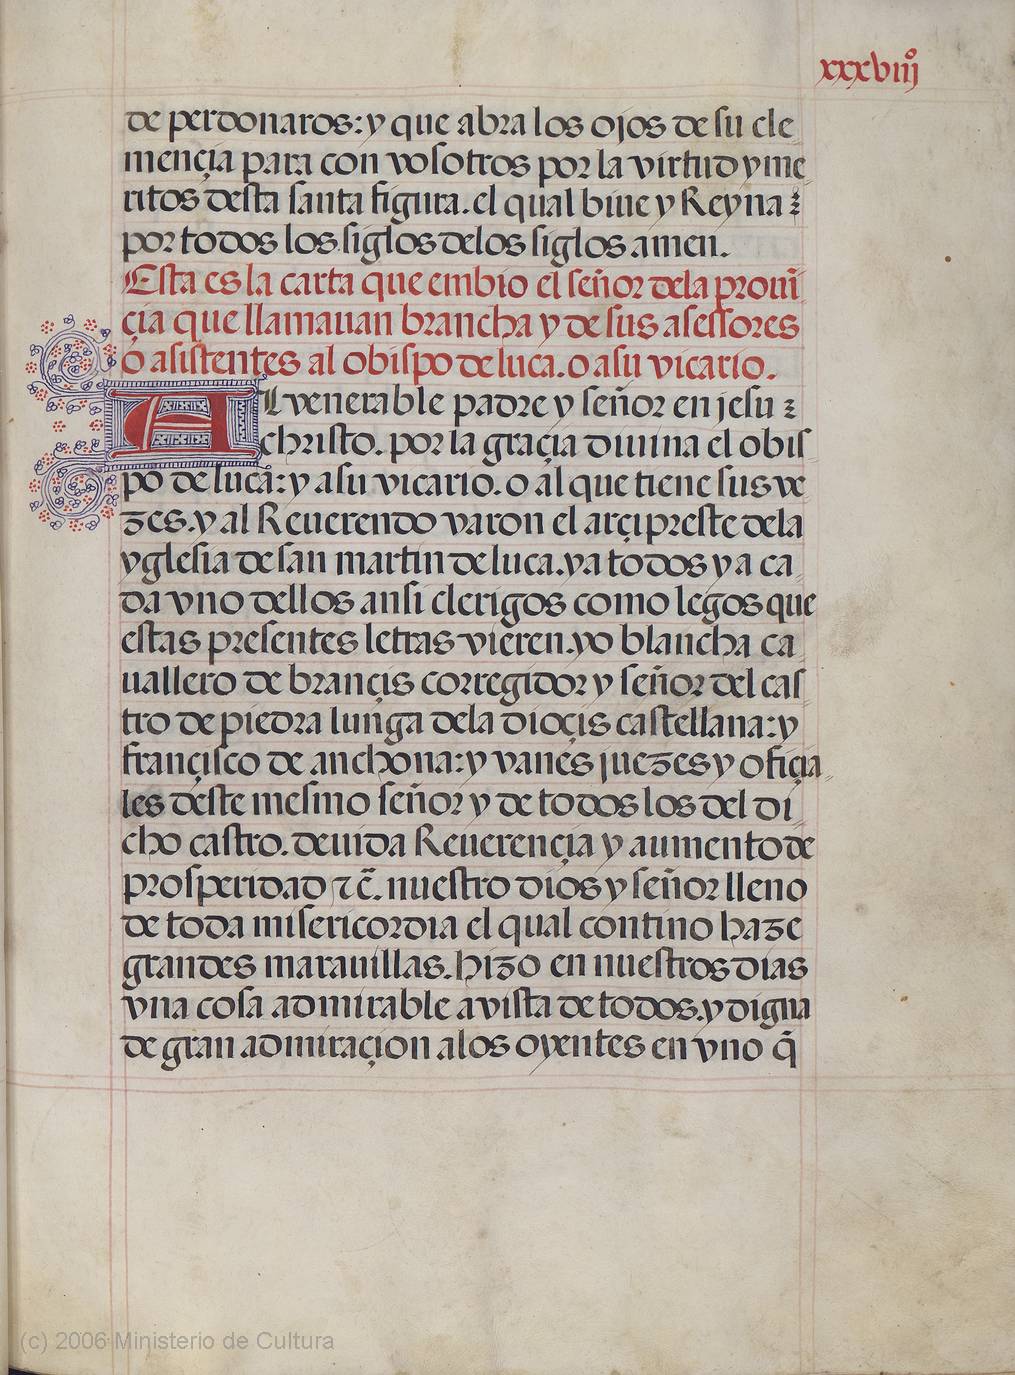 xxxviiijº
de perdonaros: y que abra los ojos de su cle
mençia para con vosotros por la virtud y me
ritos desta santa figura. el qual biue y Reyna
por todos los siglos delos siglos amen.
Esta es la carta que embio el señor dela prouĩ
çia que llamauan brancha y de sus asessores
o asistentes al obispo de luca. o asu vicario.
Al venerable padre y señor en jesu
christo. por la graçia diuina el obis
po de luca: y asu vicario. o al que tiene sus ve
zes. y al Reuerendo varon el arçipreste dela
yglesia de san martin de luca. ya todos y a ca
da vno dellos ansi clerigos como legos que
estas presentes letras vieren. yo blancha ca
uallero de brançis corregidor y señor del cas
tro de piedra lunga dela dioçis castellana: y
françisco de anchona: y vanes juezes y ofiçia
les deste mesmo señor y de todos los del di
cho castro. deuida Reuerençia y aumento de
prosperidad ⁊ c̃. nuestro dios y señor lleno
de toda misericordia el qual contino haze
grandes marauillas. hizo en nuestros dias
vna cosa admirable a vista de todos. y digna
de gran admiraçion alos oyentes en vno q̃
(c) 2006 Ministerio de Cultura